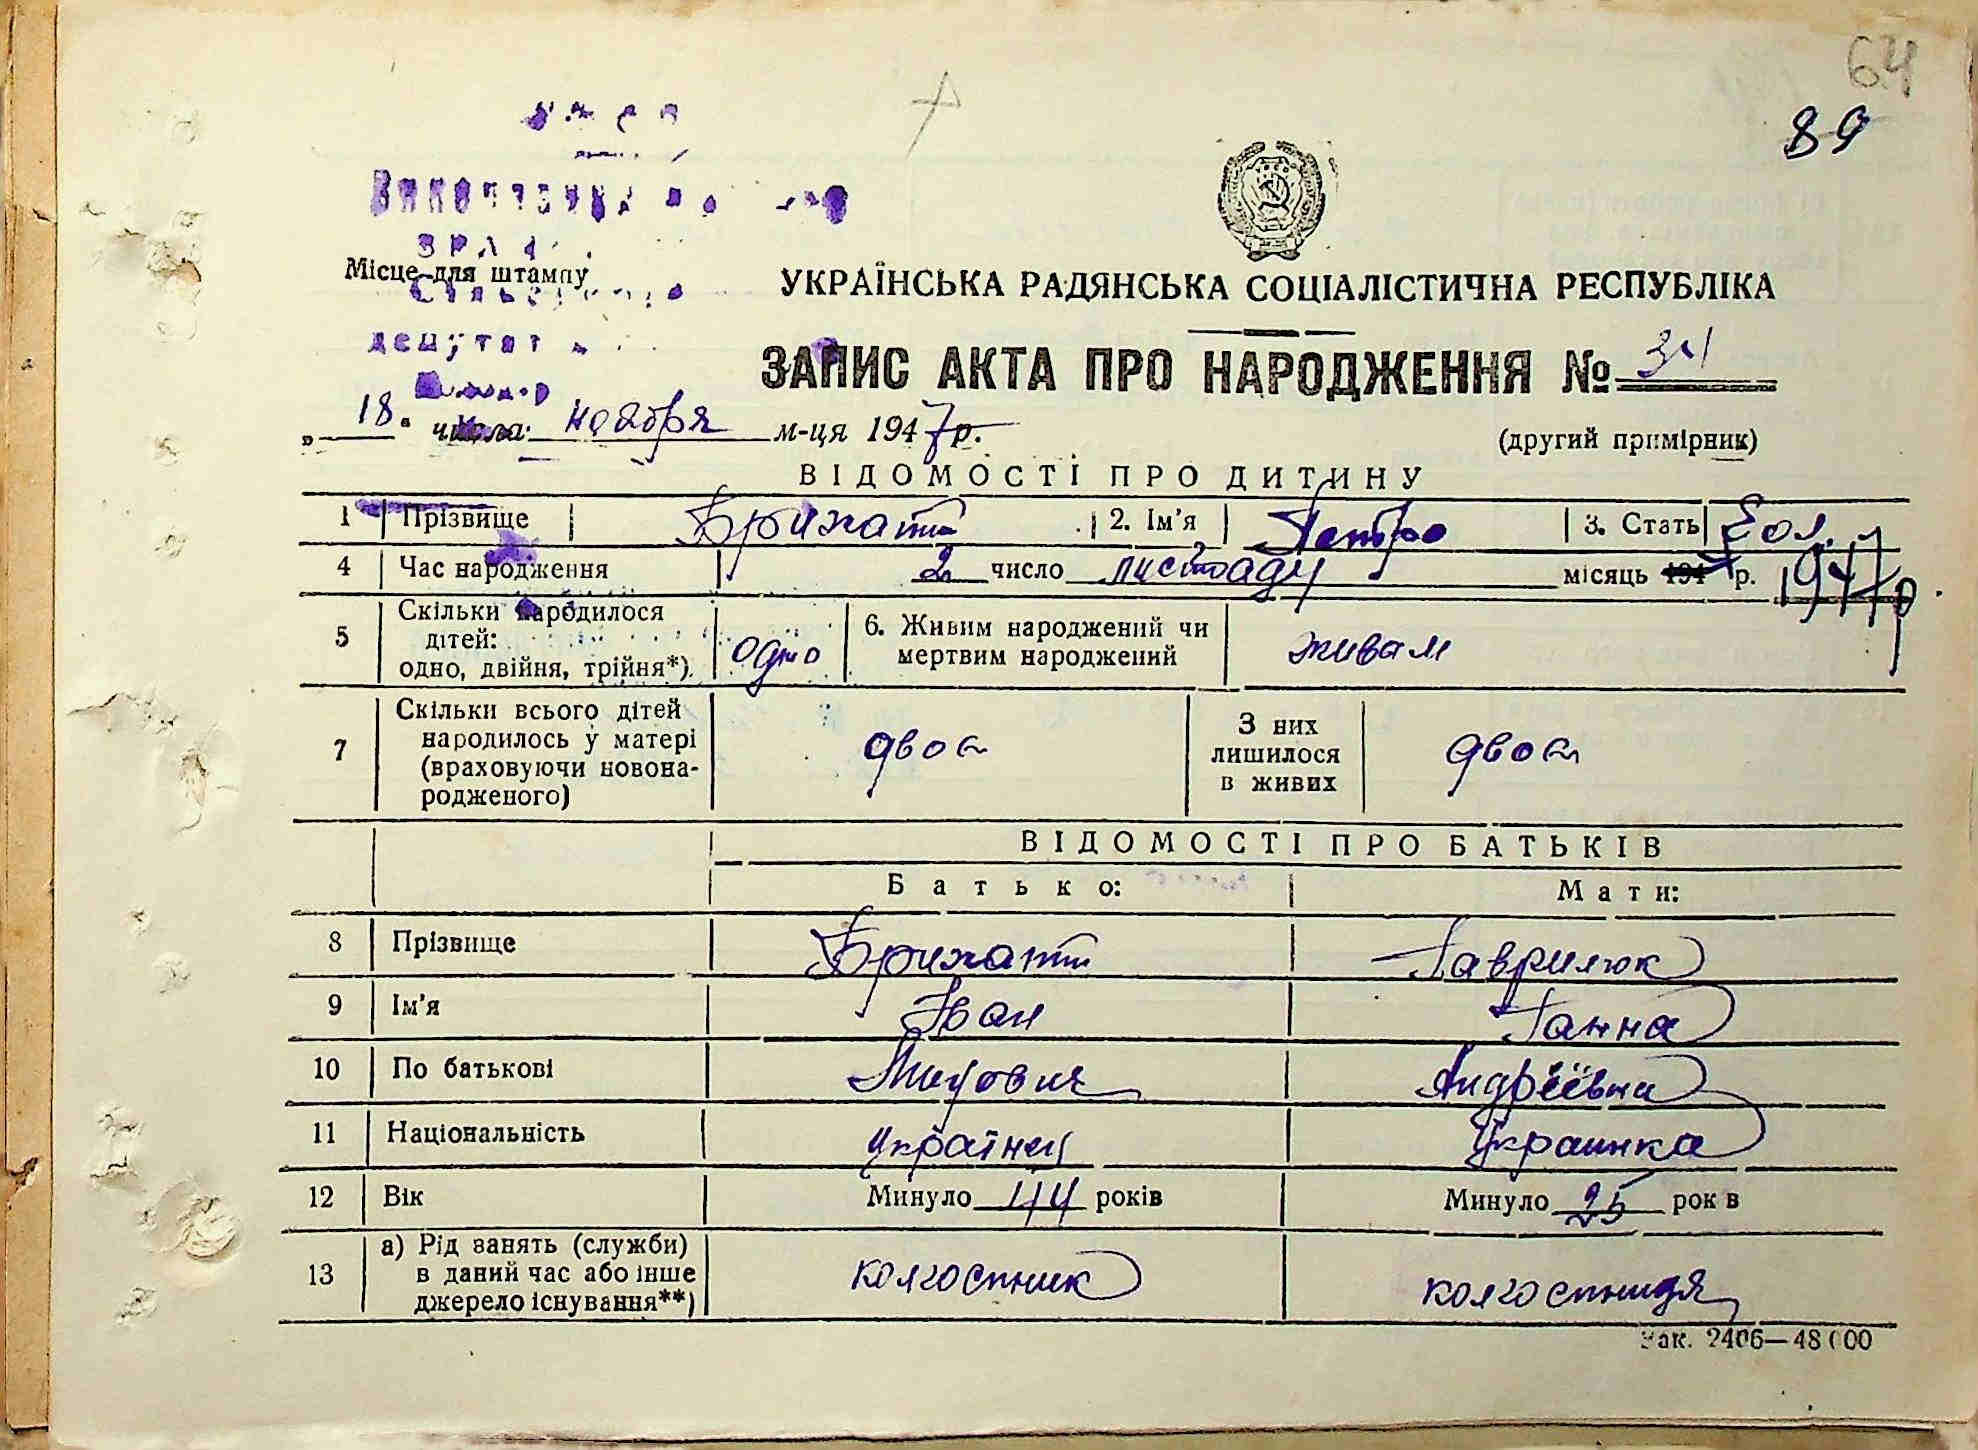 64
89
депутат
Місце для штампу
УКРАЇНСЬКА РАДЯНСЬКА СОЦІАЛІСТИЧНА РЕСПУБЛІКА
ЗАПИС АКТА ПРО НАРОДЖЕННЯ № 34
„18“ числа ноября м-ця 1947 р.
(другий примірник)
ВІДОМОСТІ ПРО ДИТИНУ
1 Прізвище Брижатт 2. Ім'я Петро 3. Стать
4 Час народження 2 число листоаду місяць 194 р. 1947 р.
5 Скільки народилося дітей: одно, двійня, трійня*). одно 6. Живим народжений чи мертвим народжений живам
7 Скільки всього дітей народилось у матері (враховуючи новонародженого) двоє З них лишилося в живих двоє
ВІДОМОСТІ ПРО БАТЬКІВ
Батько: Мати:
8 Прізвище Брижатт Гаврилюк
9 Ім'я Іван Ганна
10 По батькові Андрѐївна
11 Національність українец Украинка
12 Вік Минуло 44 років Минуло 25 рок в
13 а) Рід занять (служби) в даний час або інше джерело існування**) колгоспник колгоспниця
Зак. 2406—48000